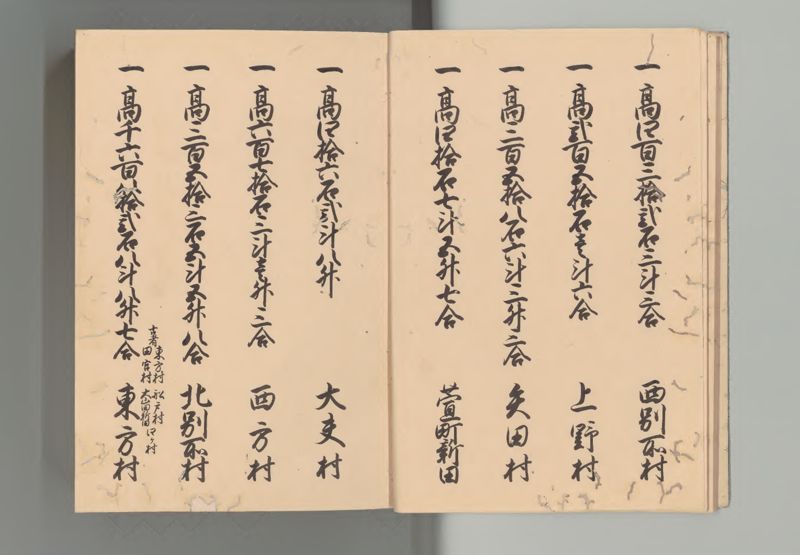 一 高四百三拾弐石三斗三合 西別所村
一 高弐百五拾石壱斗六合 上野村
一 高三百五拾八石六斗三升二合 矢田村
一 高四拾石七斗五升七合 萱町新田
一 高四拾六石弐斗八升 大夫村
一 高六百七拾石三斗壱升三合 西方村
一 高二百五拾二石五斗五升八合 北別所村
一 高千六百八拾弐石八斗八升七合 東方村
東方村 舩戸村
田宮村 大山田新田 四ヶ村